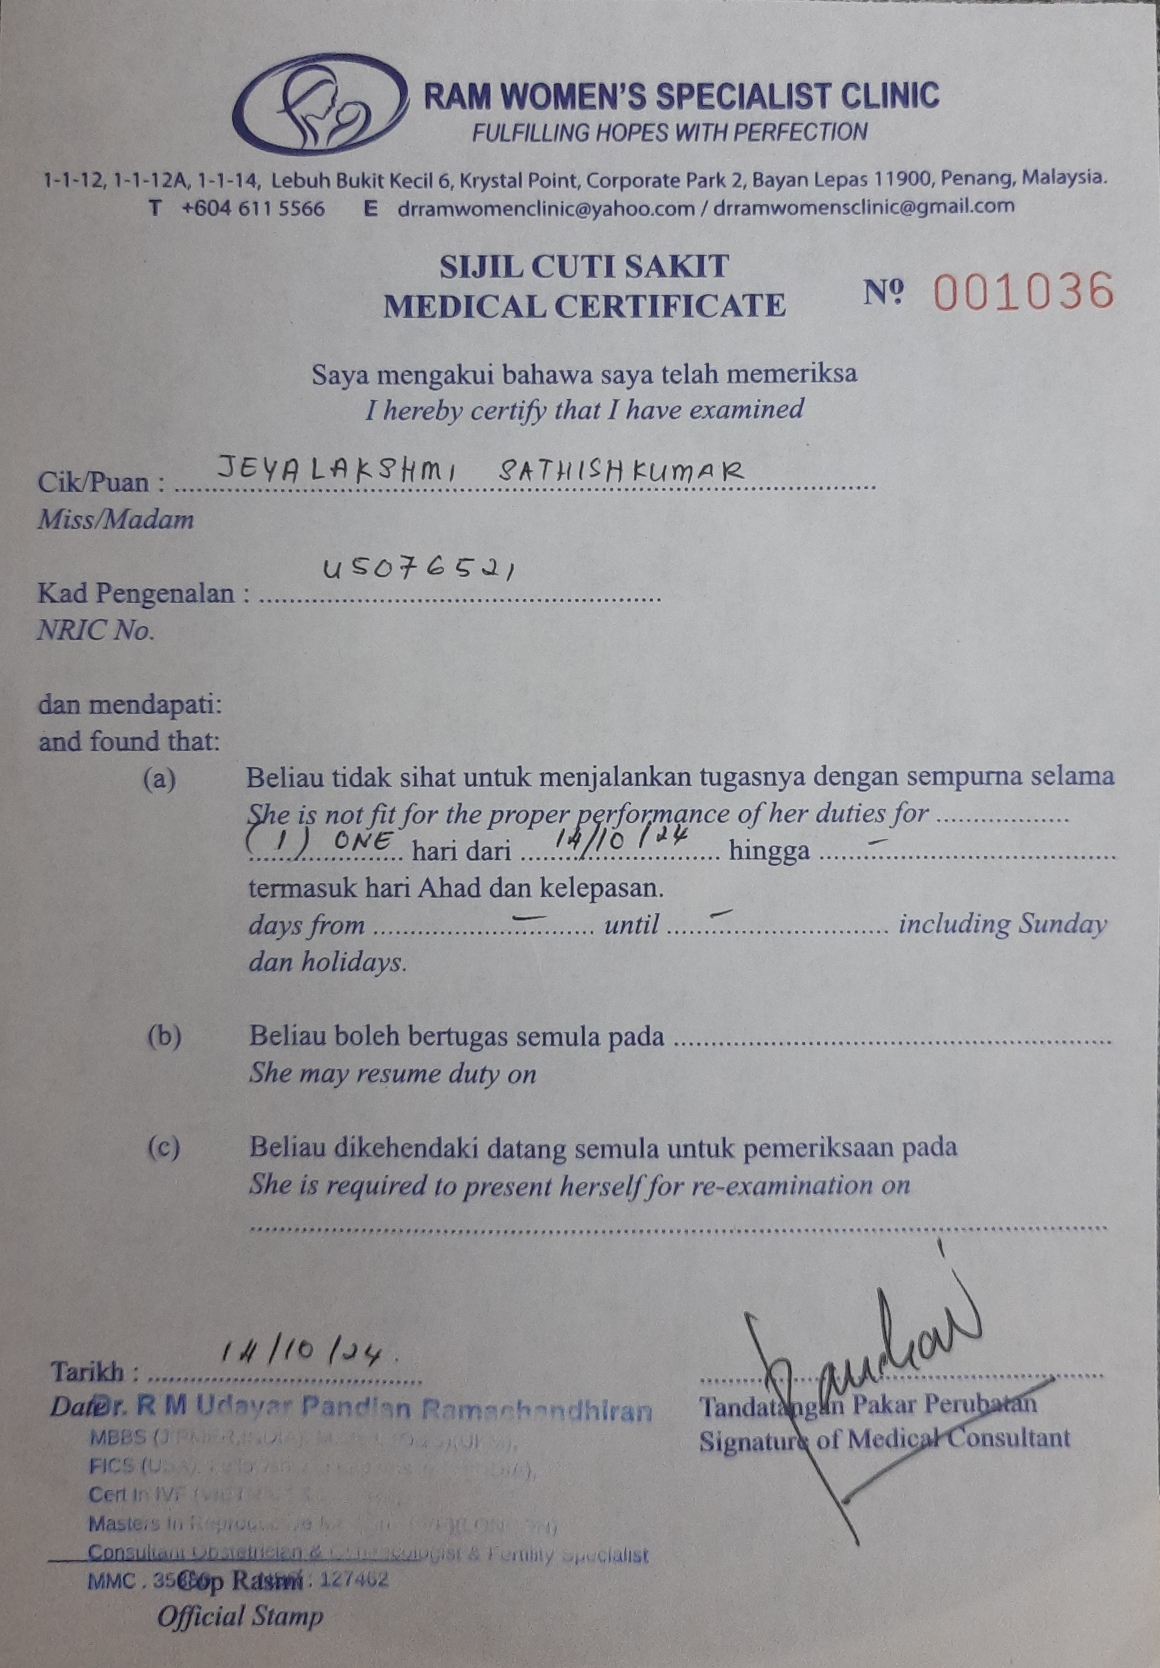 RAM WOMEN'S SPECIALIST CLINIC
FULFILLING HOPES WITH PERFECTION
1-1-12, 1-1-12A, 1-1-14, Lebuh Bukit Kecil 6, Krystal Point, Corporate Park 2, Bayan Lepas 11900, Penang, Malaysia.
T +604 611 5566 E drramwomenclinic@yahoo.com / drramwomensclinic@gmail.com
SIJIL CUTI SAKIT
MEDICAL CERTIFICATE Nº 001036
Saya mengakui bahawa saya telah memeriksa
I hereby certify that I have examined
Cik/Puan : JEYALAKSHMI SATHISHKUMAR
Miss/Madam
Kad Pengenalan : U5076521
NRIC No.
dan mendapati:
and found that:
(a) Beliau tidak sihat untuk menjalankan tugasnya dengan sempurna selama
She is not fit for the proper performance of her duties for ....................
(1) ONE hari dari 14/10/24 hingga –
termasuk hari Ahad dan kelepasan.
days from – until – including Sunday
dan holidays.
(b) Beliau boleh bertugas semula pada ....................
She may resume duty on
(c) Beliau dikehendaki datang semula untuk pemeriksaan pada
She is required to present herself for re-examination on
Tarikh : 14/10/24.
Date
Dr. R M Udayar Pandian Ramachandhiran
Tandatangan Pakar Perubatan
Signature of Medical Consultant
MBBS
FICS
Cert In IVF
Masters In
Consultant Obstetrician & Gynaecologist & Fertility Specialist
MMC . : 127462
Cop Rasmi
Official Stamp